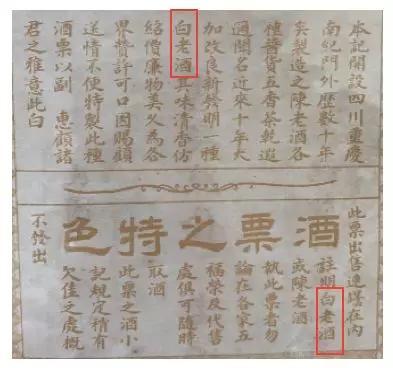 本記開設四川重慶
南紀門外歷數十年
矣製造之陳老酒各
種醬貨五香茶乾遐
邇聞名近來十年大
加改良新發明一種
白老酒其味清香仿
紹價廉物美久為各
界贊許可口因賜顧
送情不便特製此種
酒票以副 惠顧諸
君之雅意此白
酒票之特色
此票出售連壜在內
註明白老酒
或陳老酒
執此票者勿
論在各家五
福榮及代售
處俱可隨時
取酒
此票之酒小
記規定稍有
欠佳之處概
不發出